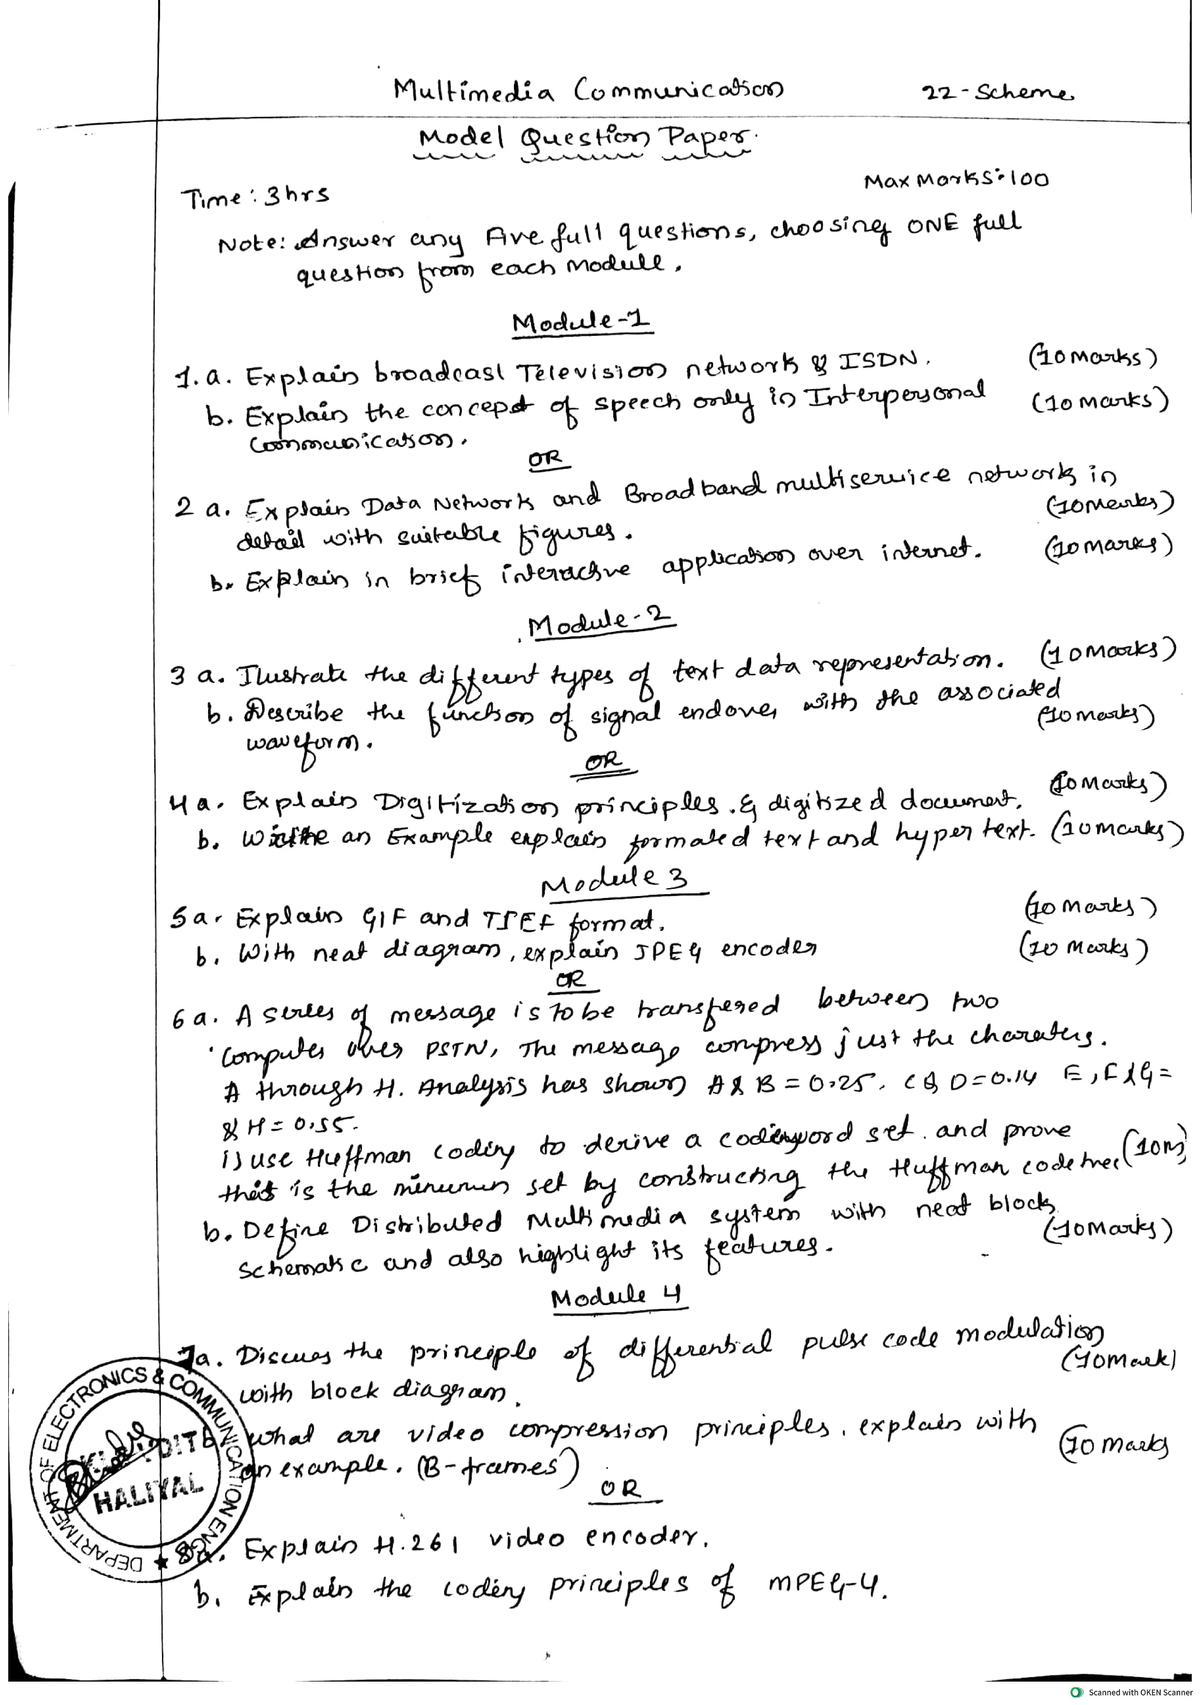 Multimedia Communication 22-Scheme
Model Question Paper.
Time: 3hrs Max Marks: 100
Note: Answer any Five full questions, choosing ONE full
question from each Module.
Module-1
1. a. Explain broadcast Television network & ISDN. (10 Marks)
b. Explain the concept of speech only in Interpersonal (10 marks)
Communication.
OR
2 a. Explain Data Network and Broadband multiservice network in
detail with suitable figures. (10marks)
b. Explain in brief interactive application over internet. (10 marks)
Module-2
3 a. Ilustrate the different types of text data representation. (10 Marks)
b. Describe the function of signal endover with the associated
waveform. (10 marks)
OR
4 a. Explain Digitization principles. & digitized document. (10 Marks)
b. Write an Example explain formated text and hyper text. (10 marks)
Module 3
5 a. Explain GIF and TIEF format. (10 Marks)
b. With neat diagram, explain JPEG encoder (10 Marks)
OR
6 a. A series of message is to be transfered between two
Computer over PSTN, The message compress just the charaters.
A through H. Analysis has shown A & B = 0.25. C & D = 0.14 E, F & G =
& H = 0.55.
i) use Huffman coding to derive a codeword set. and prove
that is the minimum set by constructing the Huffman code tree (10M)
b. Define Distributed Multimedia system with neat block
schematic and also highlight its features. (10 Marks)
Module 4
7a. Discuss the principle of differential pulse code modulation
with block diagram. (10mark)
b. what are video compression principles. explain with
an example. (B-frames) (10 marks
OR
8a. Explain H.261 video encoder.
b. Explain the coding principles of MPEG-4.
DEPARTMENT OF ELECTRONICS & COMMUNICATION ENGG. ★
HALIYAL
Scanned with OKEN Scanner